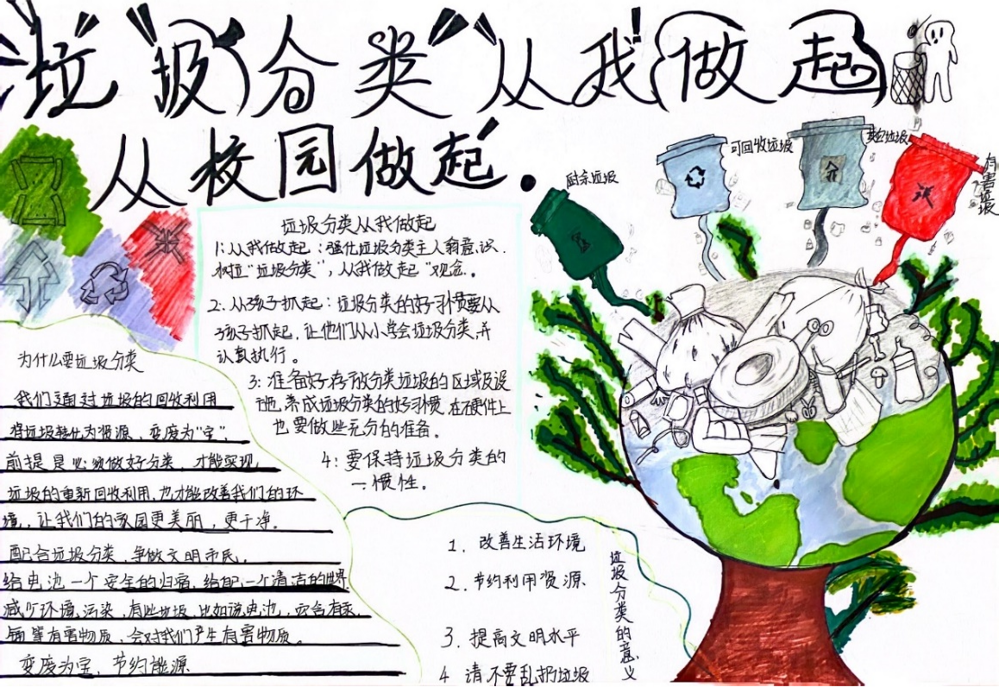 垃圾分类从我做起
从校园做起.
厨余垃圾
可回收垃圾
有害垃圾
垃圾分类从我做起
1:从我做起:强化垃圾分类主人翁意识.
树立“垃圾分类”,从我做起"观念。
2.从孩子抓起:垃圾分类的好习惯要从
孩子抓起,让他们从小学会垃圾分类,并
认真执行。
3:准备好存放分类垃圾的区域及设
施,养成垃圾分类的好习惯,在硬件上
也要做些充分的准备。
4:要保持垃圾分类的
一惯性。
为什么要垃圾分类
我们通过垃圾的回收利用
将垃圾转化为资源,变废为"宝",
前提是必须做好分类,才能实现
垃圾的重新回收利用,也才能改善我们的环
境,让我们的家园更美丽,更干净。
配合垃圾分类,争做文明市民,
给电池一个安全的归宿,给一个清洁的世界
减少环境污染,有些垃圾,比如说电池,含有汞,
等有害物质,会对我们产生有害物质。
变废为宝,节约能源
1. 改善生活环境
2. 节约利用资源
3. 提高文明水平
4 请不要乱扔垃圾
垃圾分类的意义